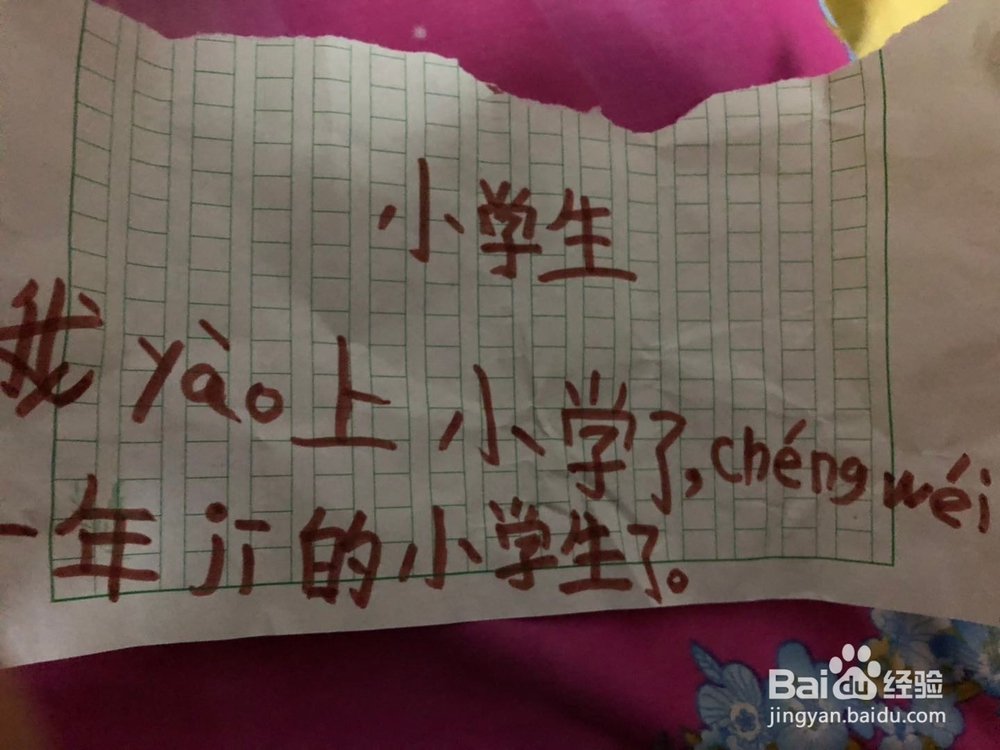 小学生
我yào上小学了,chéng wéi
一年jī的小学生了。
Bai du 经验
jingyan.baidu.com